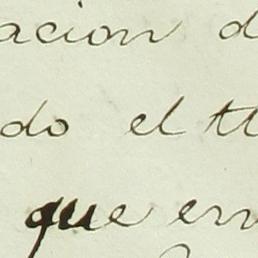 acion d
do el tt
que em